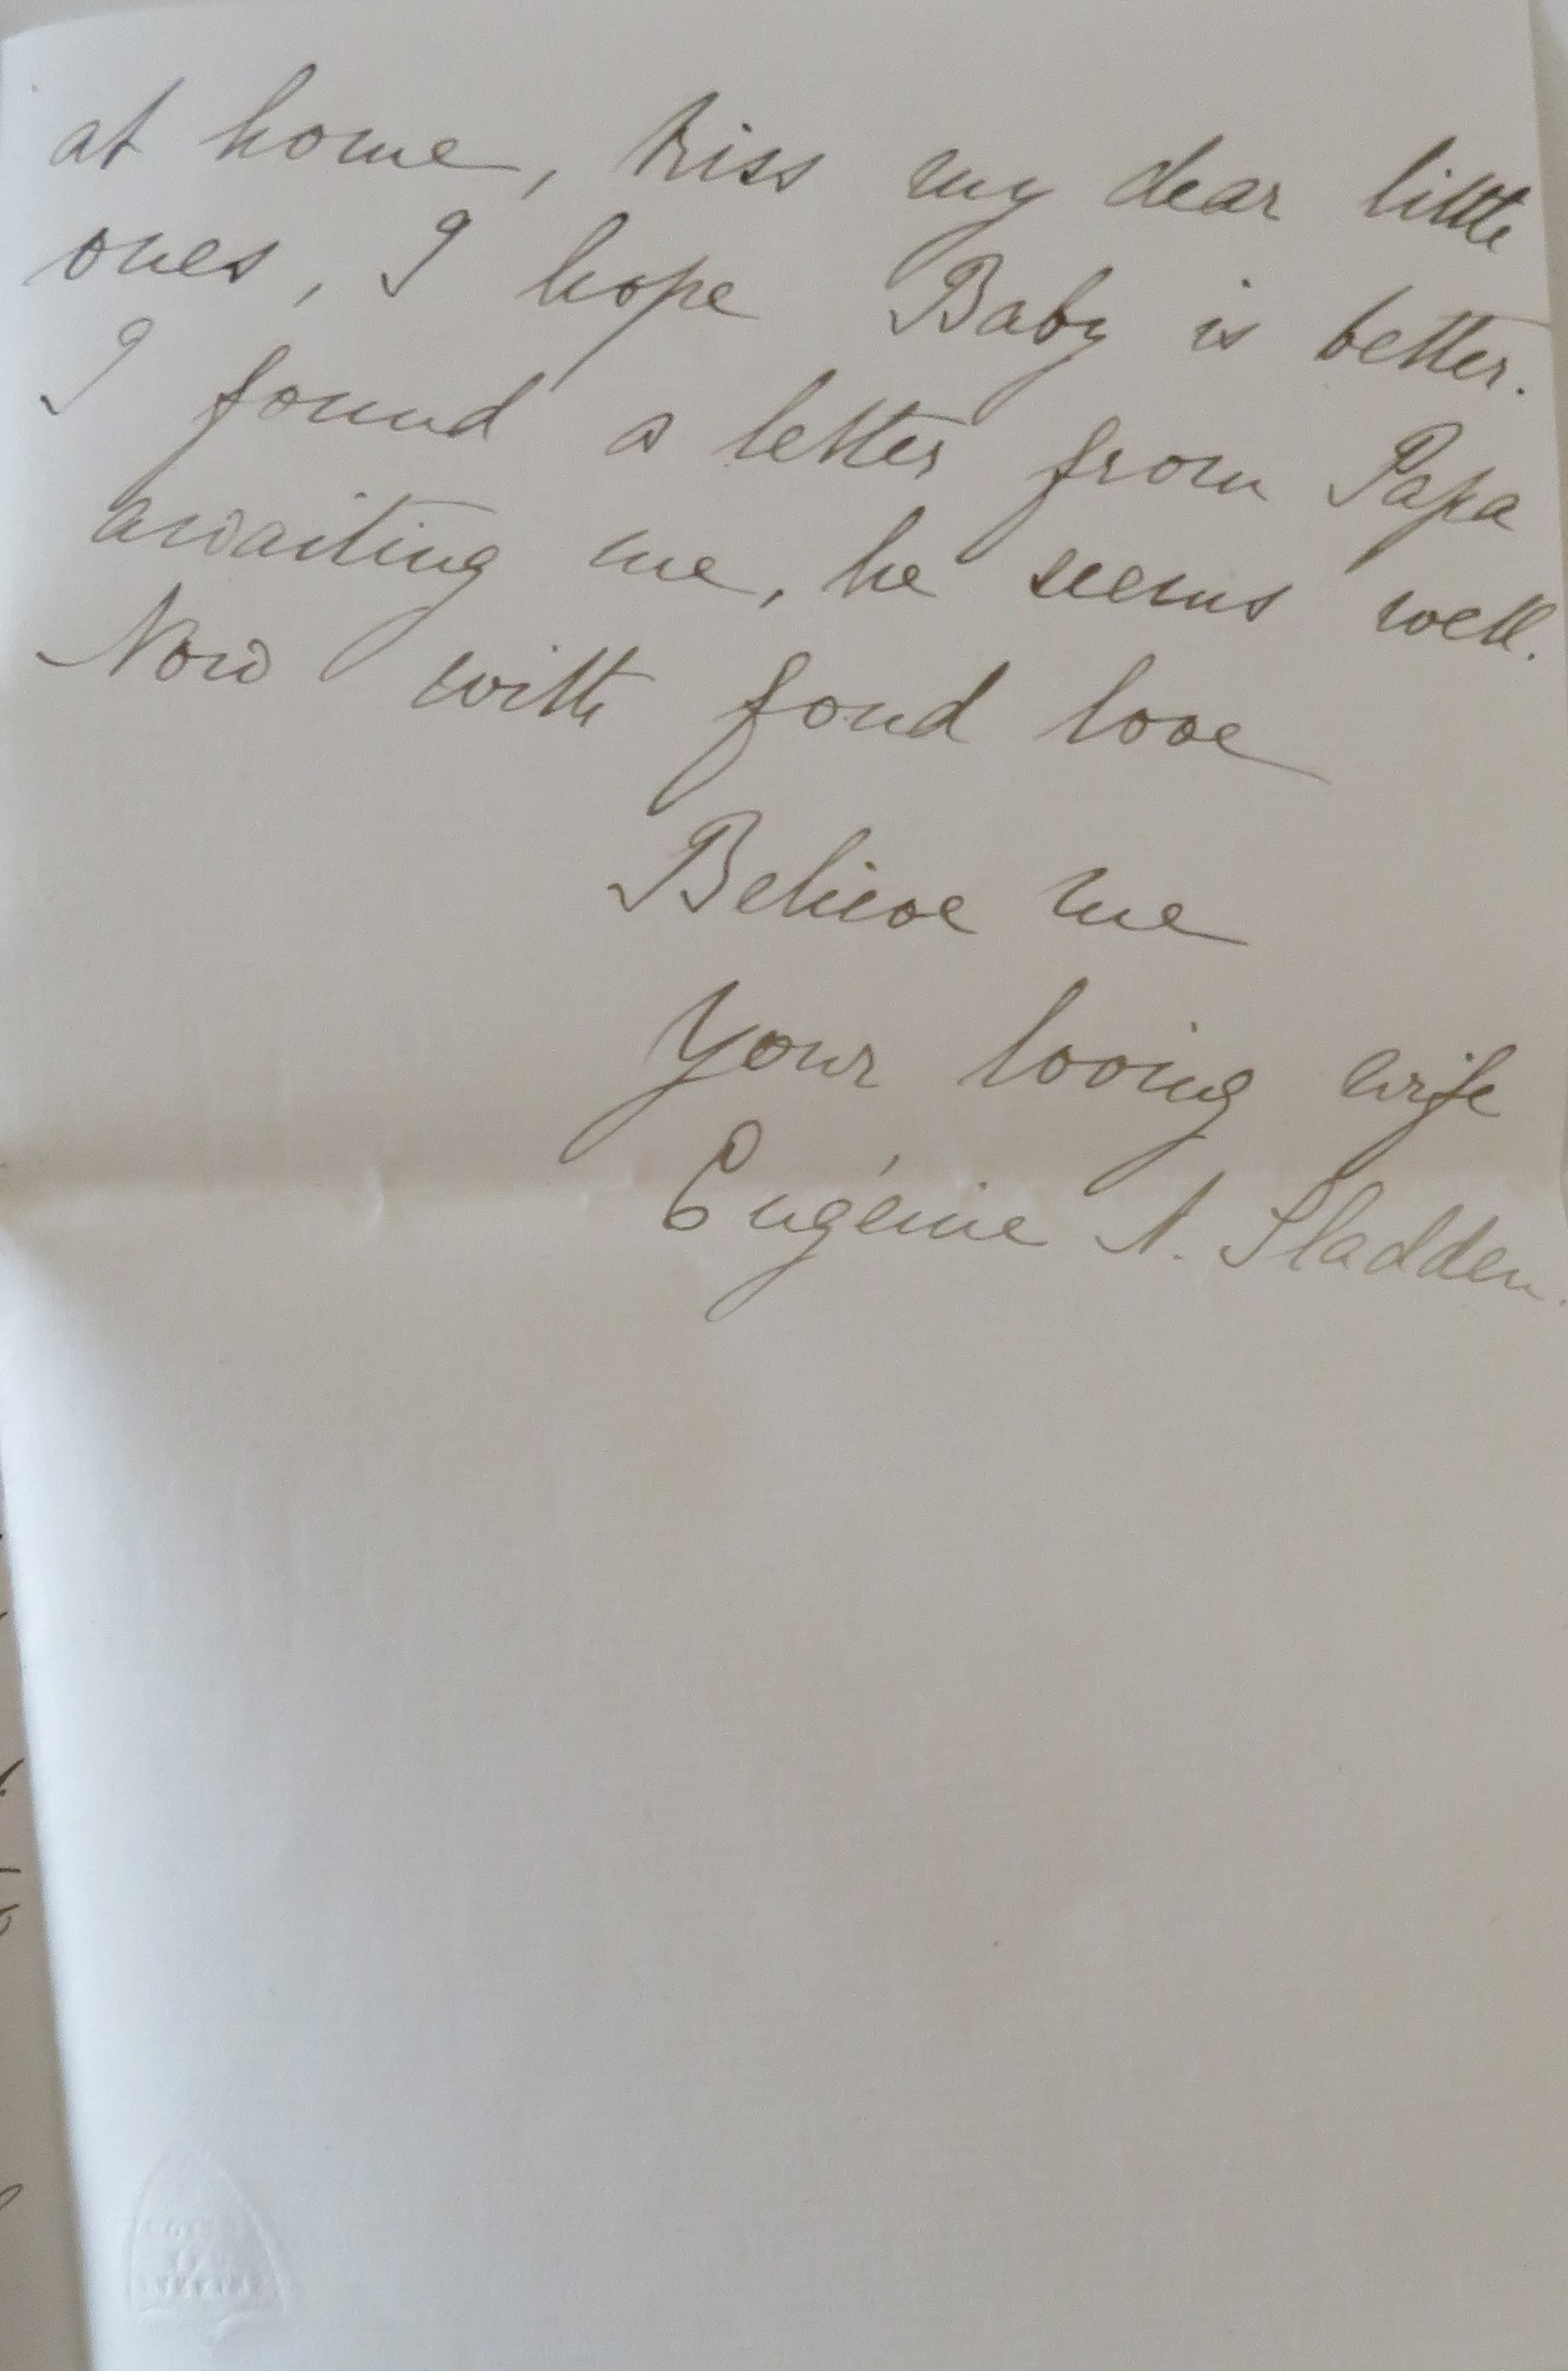 at home, kiss my dear little
ones, I hope Baby is better.
I found a letter from Papa
awaiting me, he seems well.
Now with fond love
Believe me
Your loving wife
Eugénie N. Sladden.